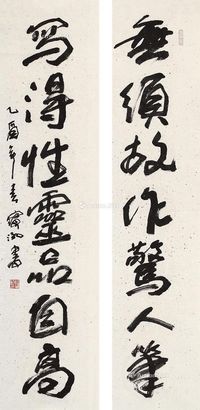 無須故作驚人筆
寫得性靈品自高
乙酉年春
書